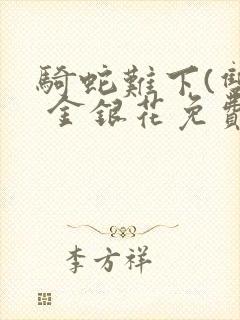 騎蛇難下(雙
金銀花免費
李方祥